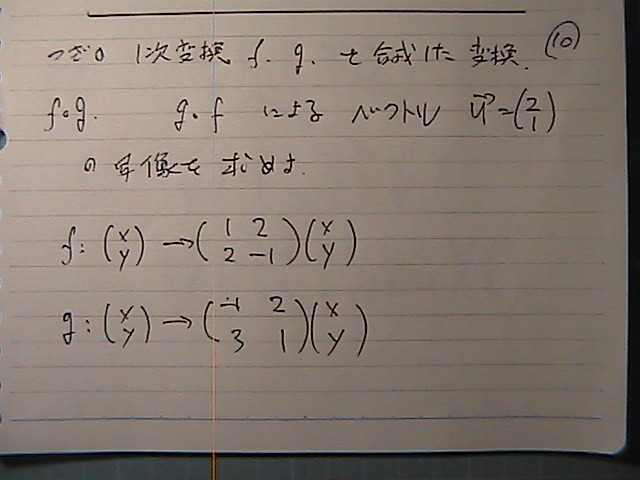 つぎの 1次変換 f. g. を合成した変換. (10)
f∘g. g∘f による ベクトル u⃗=(2 1)
の 像を 求めよ.
f: (x y) → (1 2 2 -1)(x y)
g: (x y) → (-1 2 3 1)(x y)